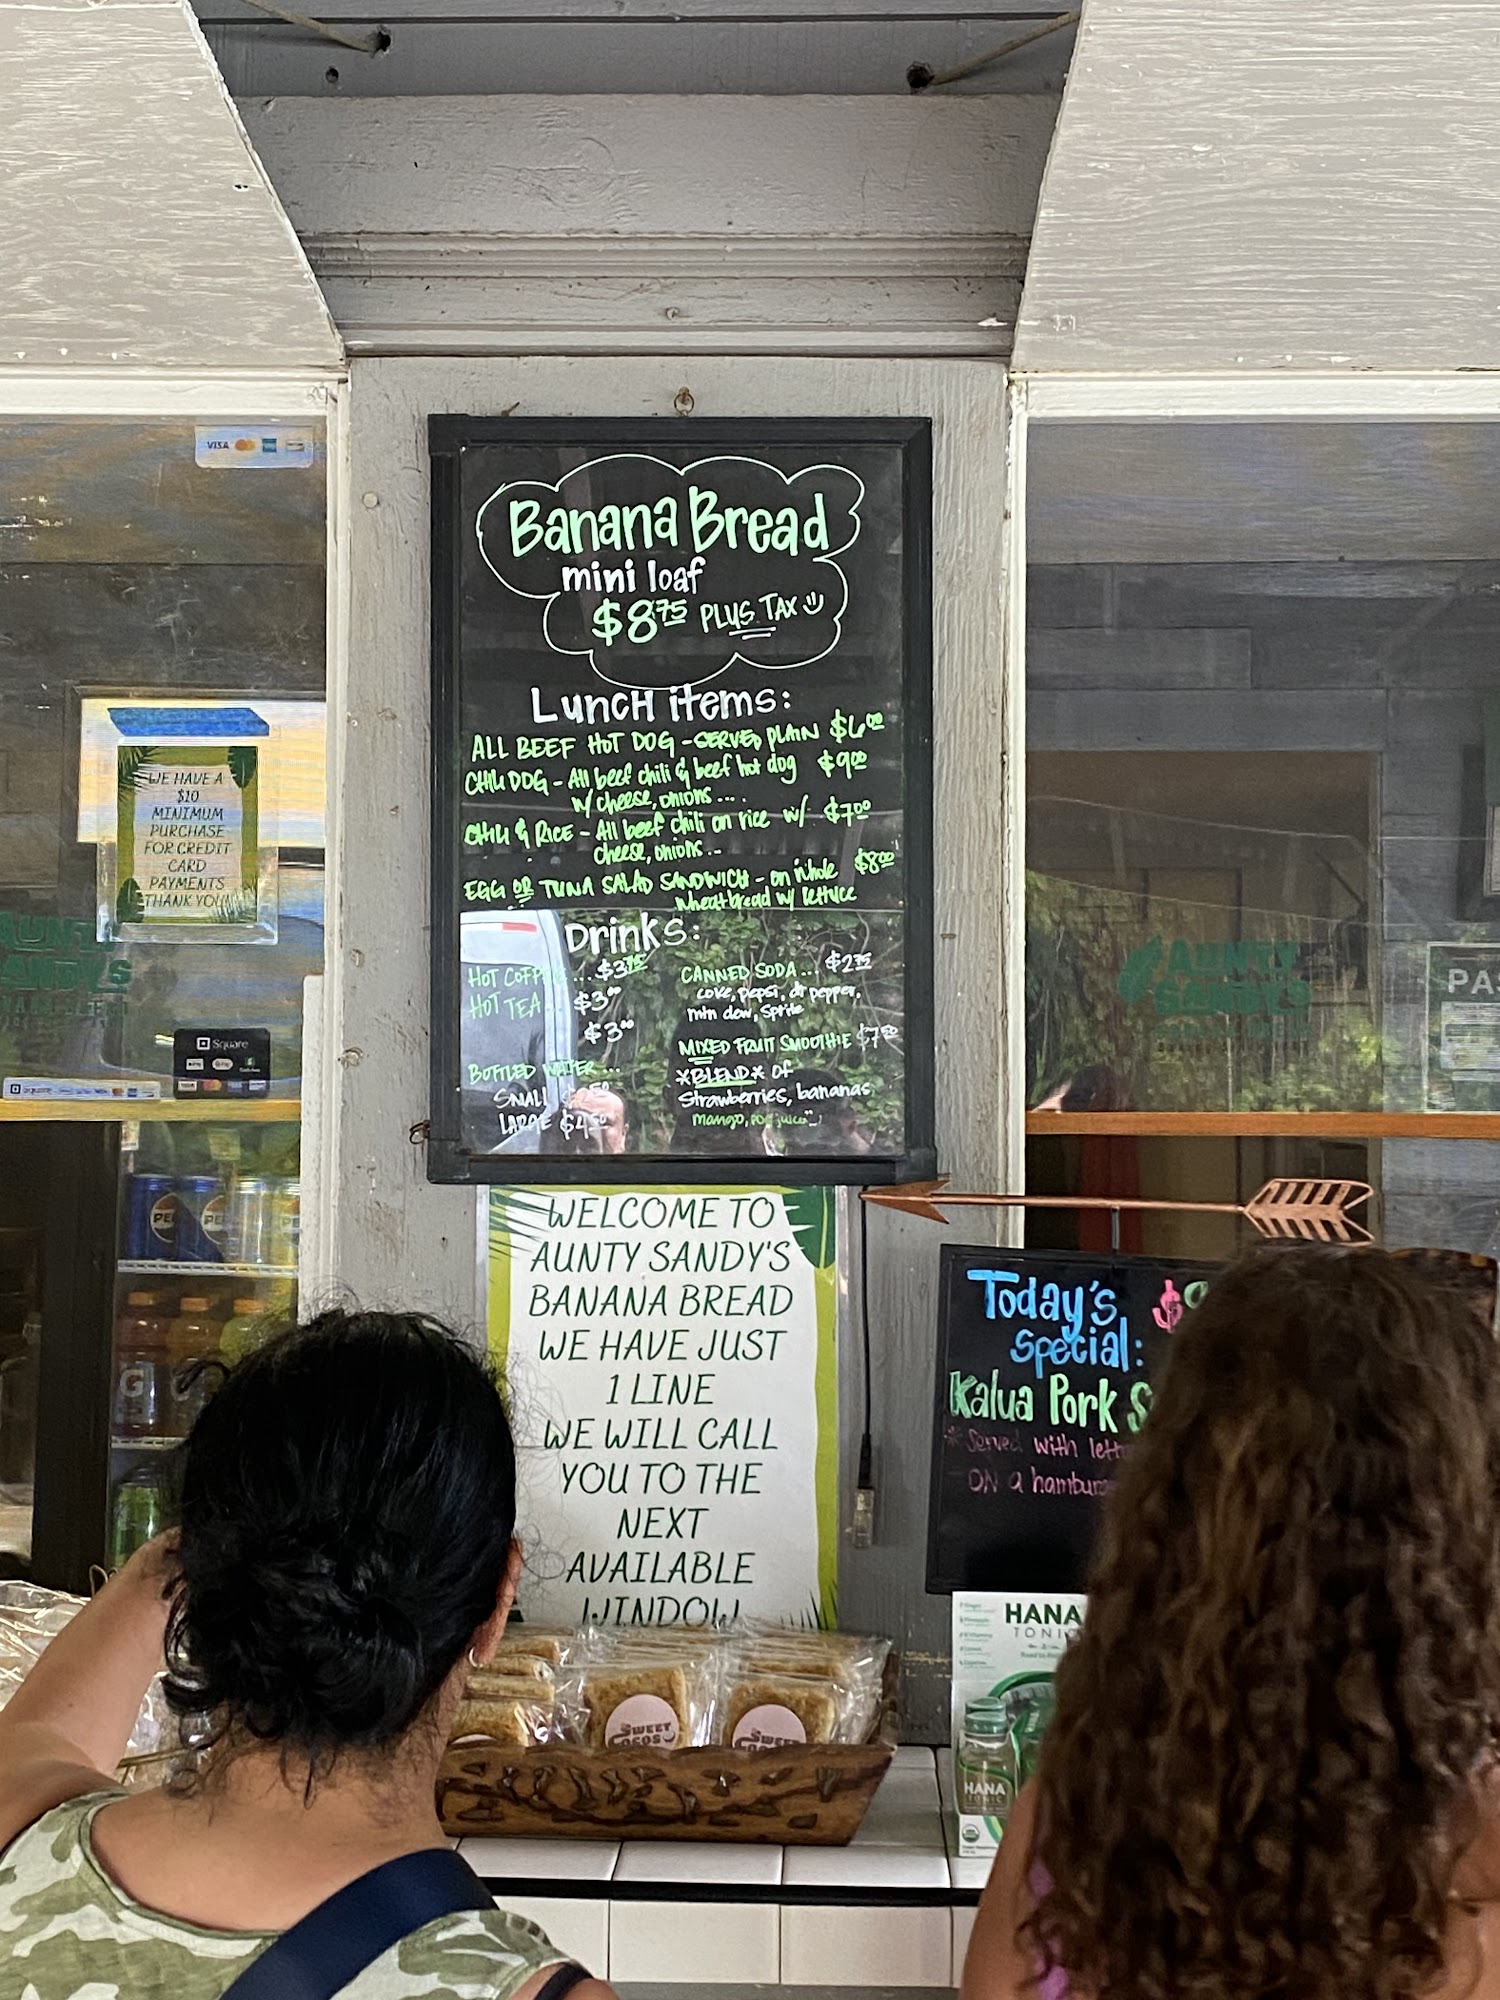 Banana Bread
mini loaf
$8.75 PLUS TAX
Lunch items:
ALL BEEF HOT DOG - SERVED PLAIN $6.00
CHILI DOG - All beef chili & beef hot dog $9.00
w/ cheese, onions ....
CHILI & RICE - All beef chili on rice w/ $7.00
cheese, onions...
EGG OR TUNA SALAD SANDWICH - on whole $8.00
wheat bread w/ lettuce
Drinks:
HOT COFFEE ... $3.75
HOT TEA $3.00
$3.00
BOTTLED WATER ...
SMALL
LARGE $4.50
CANNED SODA ... $2.75
coke, pepsi, dr pepper,
mtn dew, Sprite
MIXED FRUIT SMOOTHIE $7.50
*BLEND* of
Strawberries, bananas,
mango, juice
WELCOME TO
AUNTY SANDY'S
BANANA BREAD
WE HAVE JUST
1 LINE
WE WILL CALL
YOU TO THE
NEXT
AVAILABLE
WINDOW
VISA
WE HAVE A
$10
MINIMUM
PURCHASE
FOR CREDIT
CARD
PAYMENTS
THANK YOU!
AUNTY
SANDY'S
Square
Square
VISA
AUNTY
SANDY'S
PA
Today's $
Special:
Kalua Pork S
* Served with lett
ON a hamburg
HANA
TONIC
HANA
TONIC
SWEET
SWEET
PE
PE
G
G